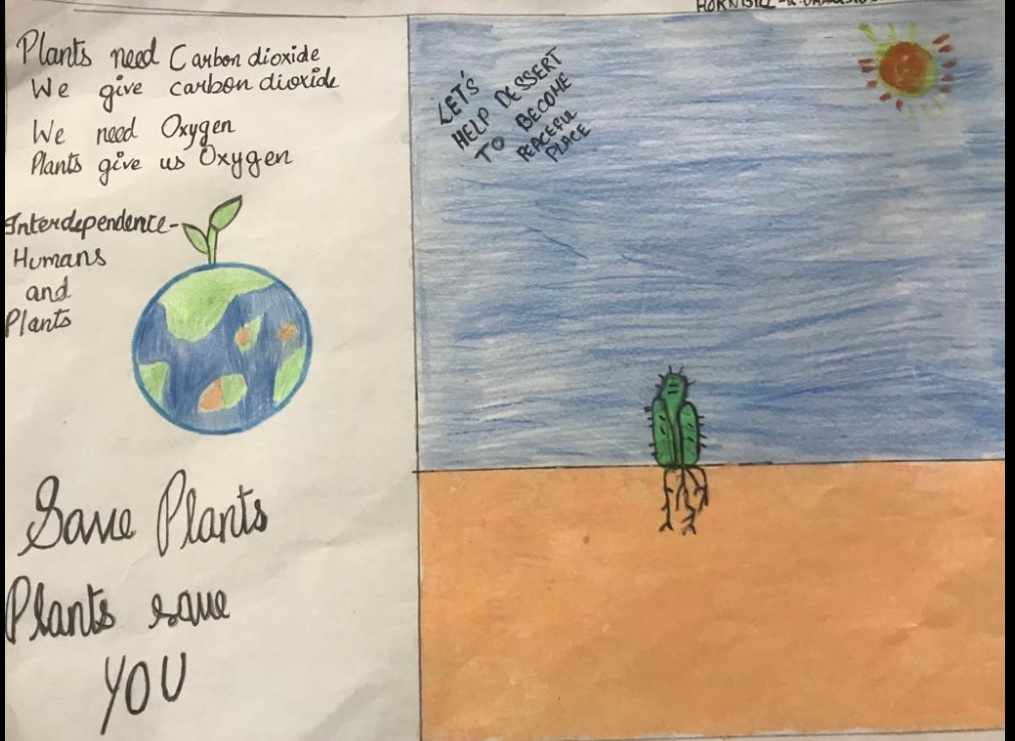 Plants need Carbon dioxide
We give carbon dioxide
We need Oxygen
Plants give us Oxygen
Interdependence-
Humans
and
Plants
Save Plants
Plants save
YOU
LET'S
HELP DESSERT
TO BECOME
PEACEFUL
PLACE